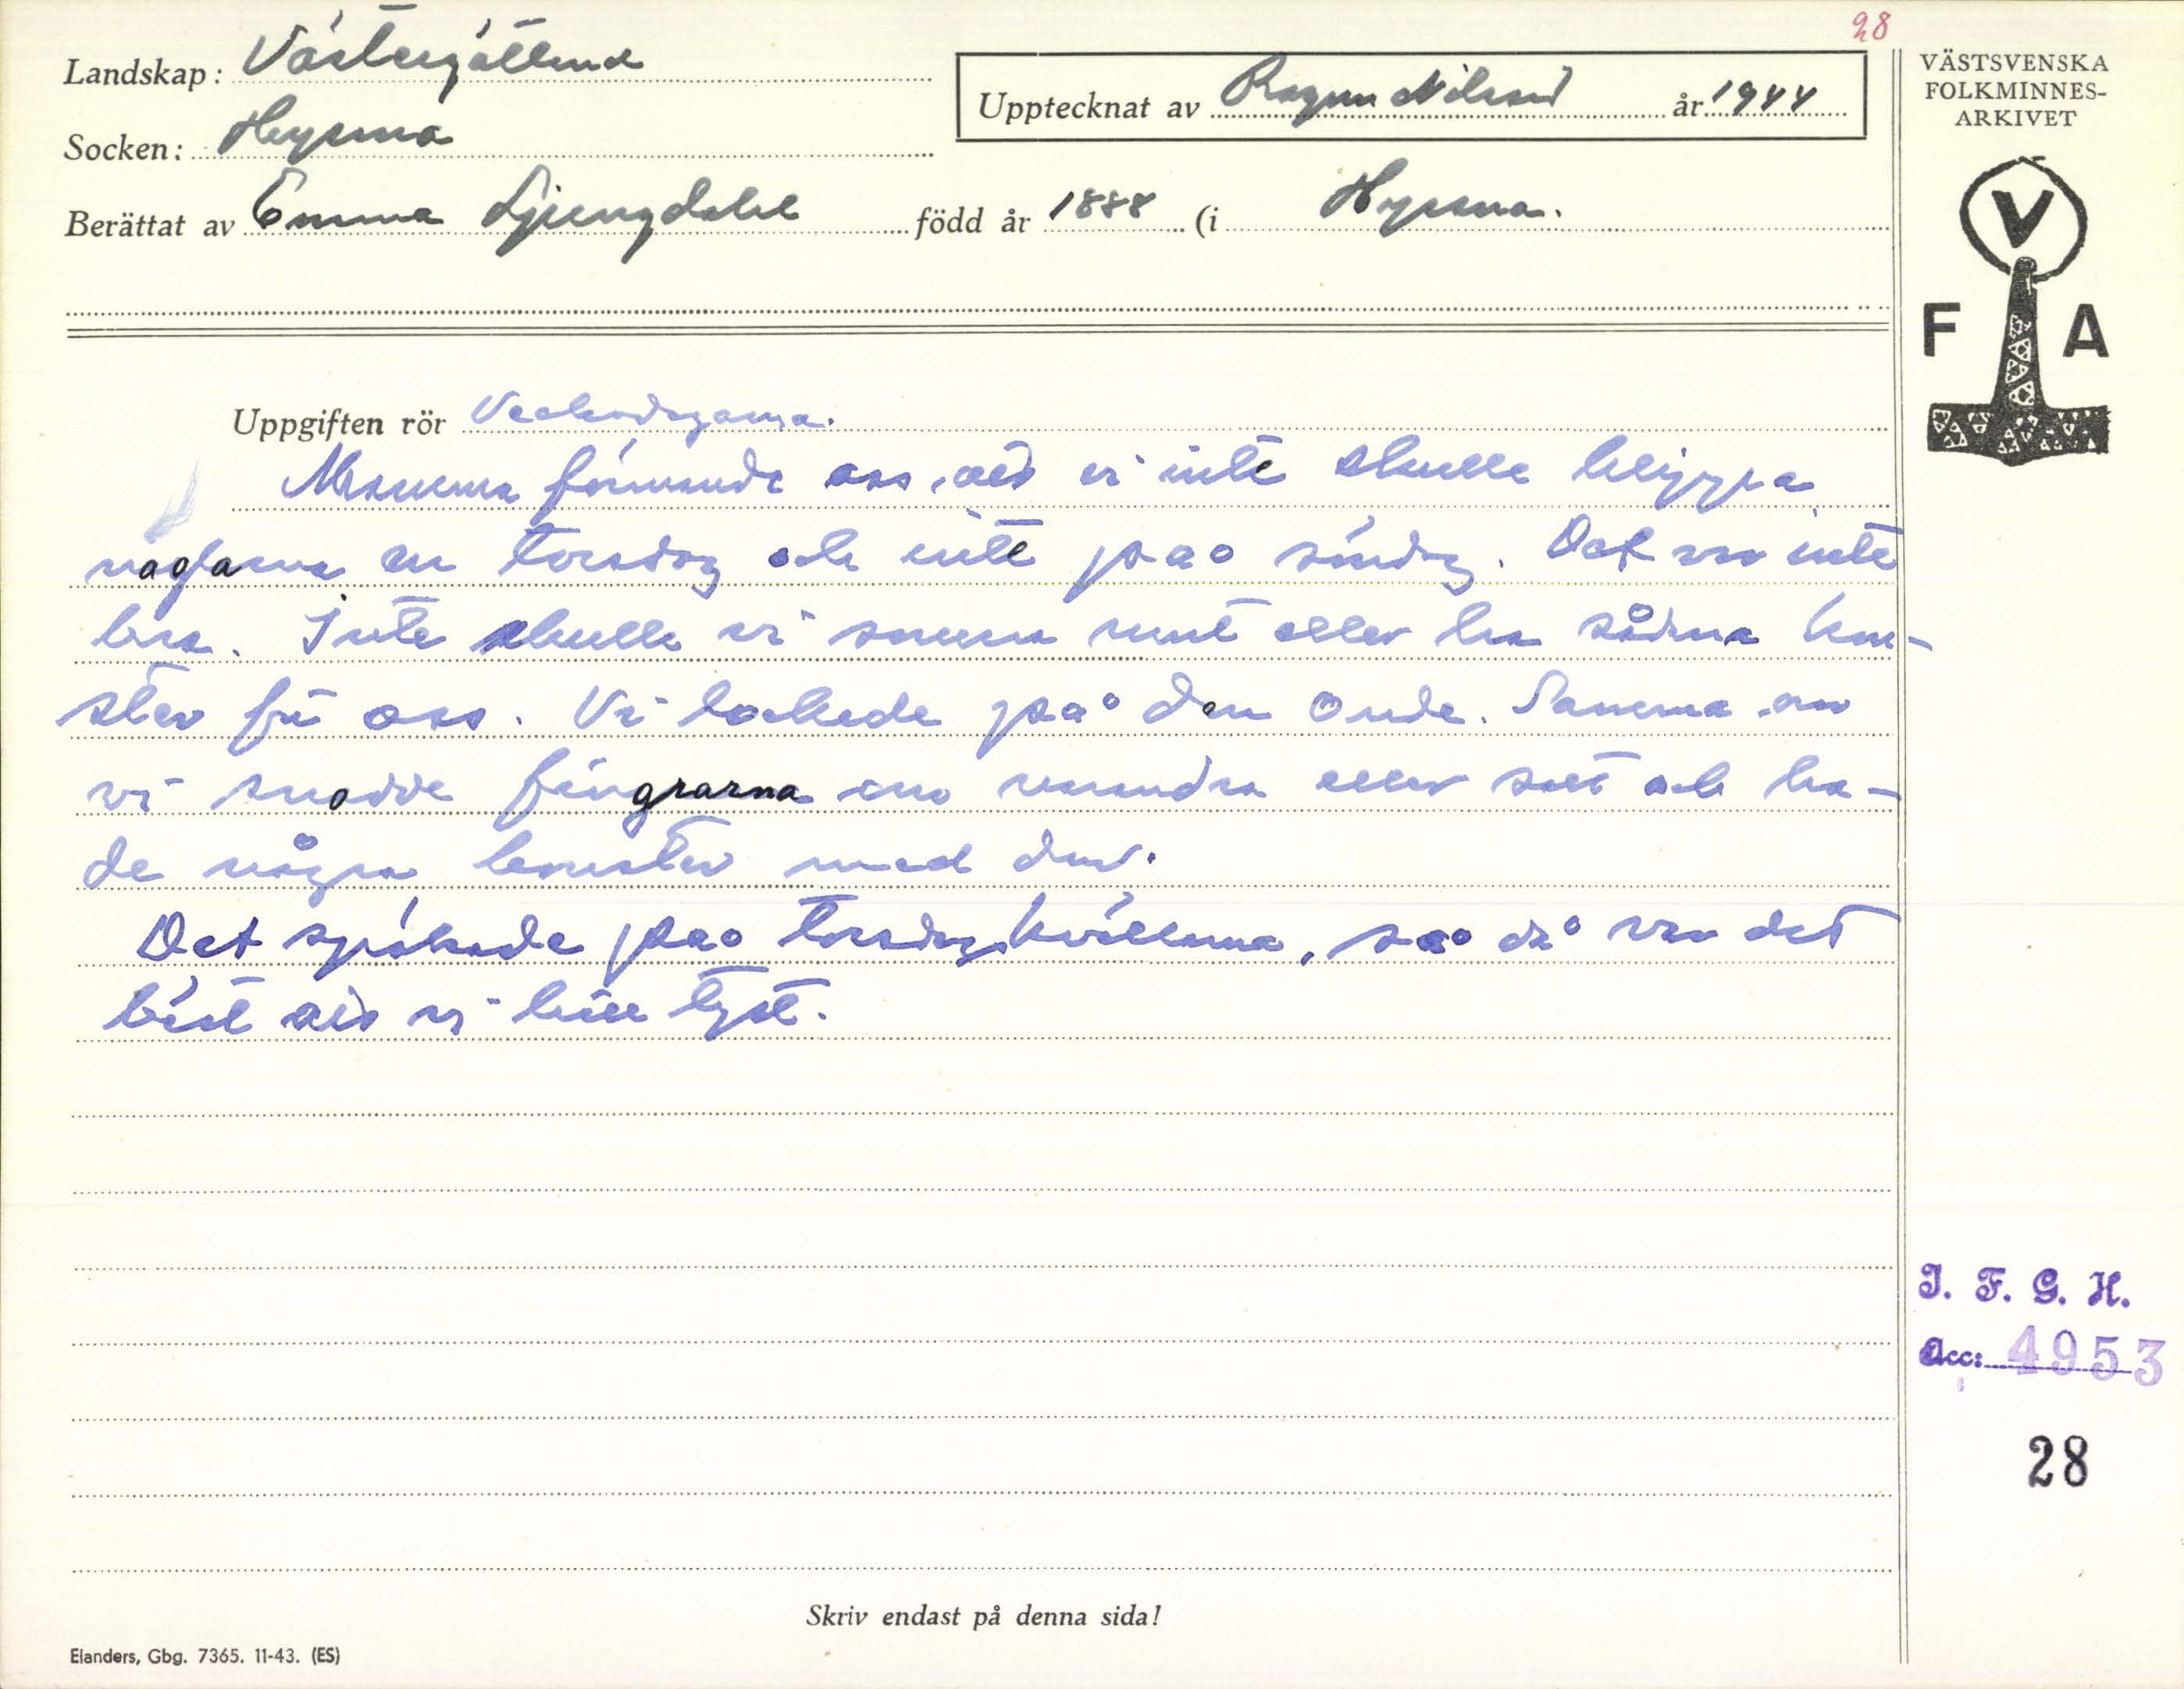 28
Landskap: Västergötland
Upptecknat av Ragnar Nilsson år 1944
Socken: Hyssna
Berättat av Emma Ljungdahl född år 1888 (i Hyssna.
VÄSTSVENSKA
FOLKMINNES-
ARKIVET
V
F A
Uppgiften rör Veckodagarna.
Mamma förmande oss, att vi inte skulle klippa
naglarna en torsdag och inte på söndag. Det var inte
bra. Inte skulle vi snurra runt eller ha sådana kon-
ster för oss. Vi lockade på den Onde. Samma om
vi snodde fingrarna om varandra eller satt och ha-
de några konster med dem.
Det spökade på torsdagskvällarna, så då var det
bäst att vi höll tyst.
I. F. G. H.
Acc: 4953
28
Skriv endast på denna sida!
Elanders, Gbg. 7365. 11-43. (ES)